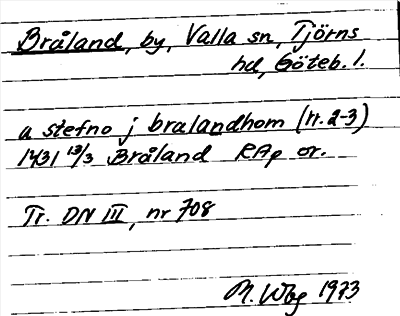 Bråland, by, Valla sn, Tjörns
hd, Göteb. l.
a stefno j bralandhom (r. 2-3)
1431 13/3 Bråland RAp or.
Tr. DN III, nr 708
M. Wbg 1973